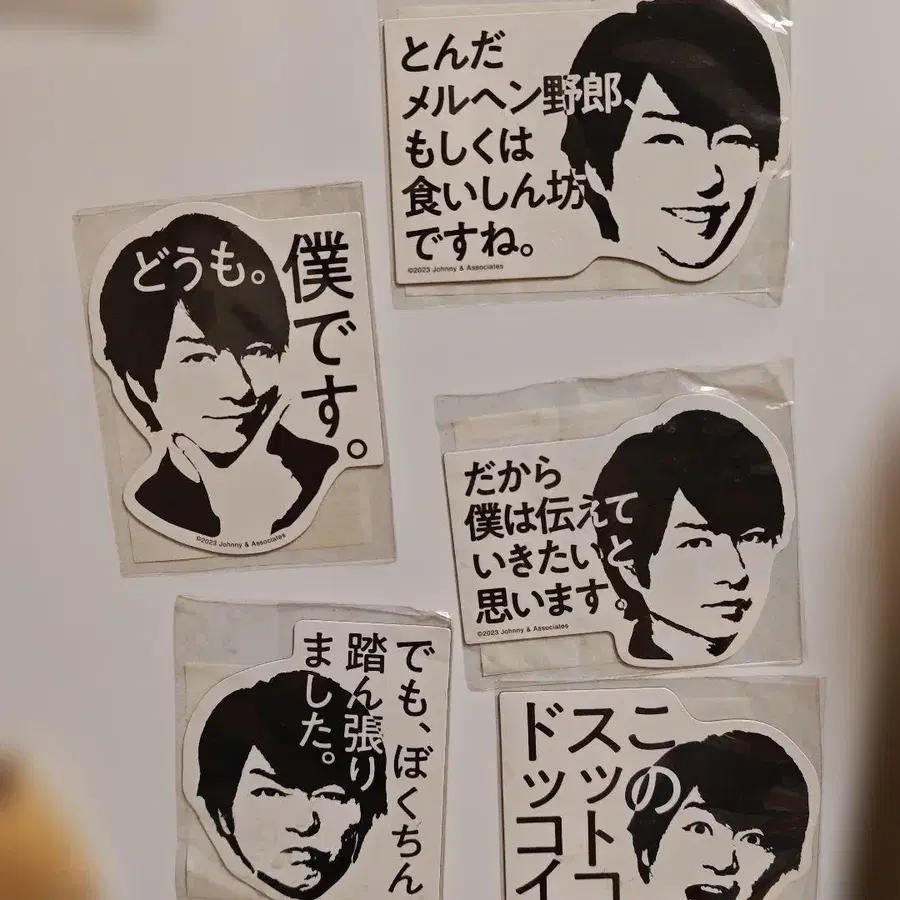 とんだ
メルヘン野郎、
もしくは
食いしん坊
ですね。
©2023 Johnny & Associates
どうも。
僕です。
©2023 Johnny & Associates
だから
僕は伝えて
いきたいと
思います。
©2023 Johnny & Associates
でも、ぼくちん
踏ん張り
ました。
この
スットコ
ドッコイ